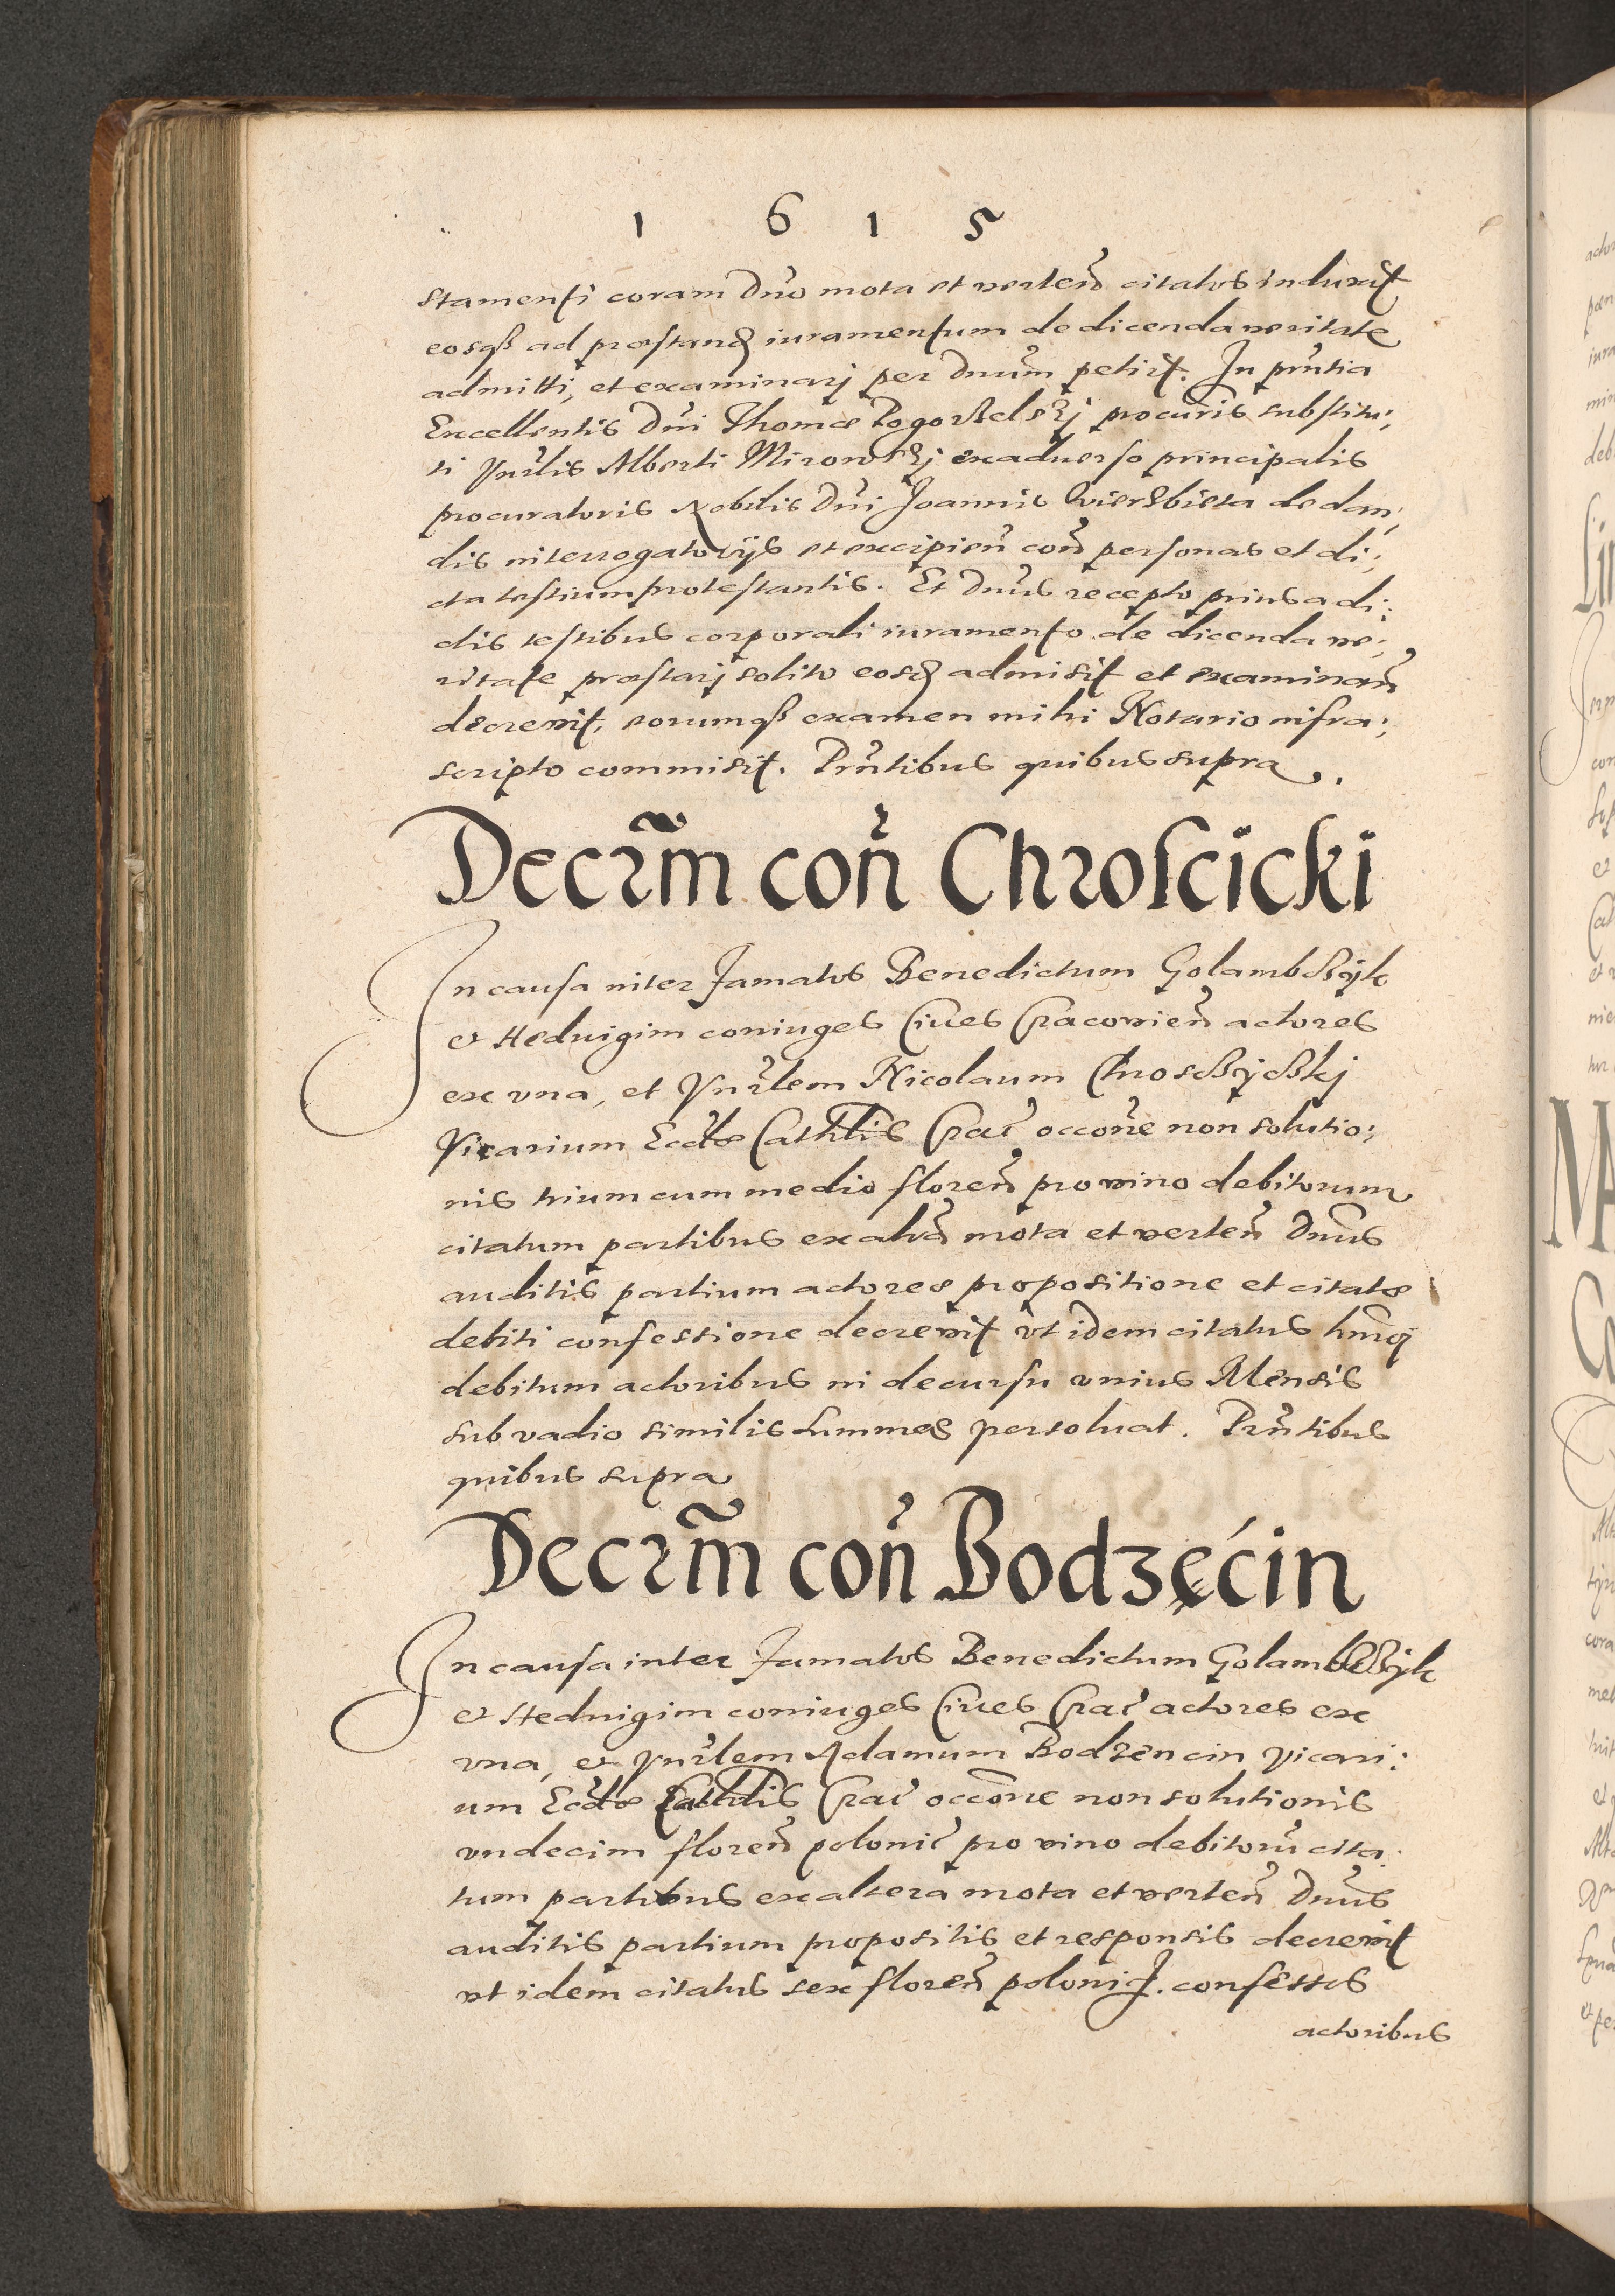 1 6 1 5
stamenti coram Dno mota et verten citatos induxit
eosqß ad præstand iuramentum de dicenda veritate
admitti, et examinarj per Dnum petijt. In pñtia
Excellentis Dni Thomæ Pogorßelskj procuris substitu;
ti Vnrlis Alberti Mirowskj ex aduerso principalis
procuratoris Nobilis Dni Joannis Wierzbieta de dan;
dis interrogatorijs et excipien con personas et di;
cta testium protestantis. Et Dnus recepto prius a di;
ctis testibus corporali iuramento de dicenda ve;
ritate præstarj solito eosd admisit et examinan
decrevit, eorumqß examen mihi Notario infra;
scripto commisit. Pñtibus quibus supra.
Decrm con Chroscicki
In causa inter famatos Benedictum Golambßyk
et Hedvigim coniuges Ciues Cracovien actores
ex vna, et Vnrlem Nicolaum Chroscßyckj
Vicarium Eccłæ Cathłis Crac occone non solutio;
nis trium cum medio floren pro vino debitorum
citatum partibus ex altã mota et verten Dnus
auditis partium actoreæ propositione et citatæ
debiti confessione decrevit vt idem citatus hmoj
debitum actoribus in decursu vnius Mensis
sub vadio similis summæ persoluat. Pñtibus
quibus supra
Decrm con Bodzęćin
In causa inter famatos Benedictum Golambßyk
et Hedvigim coniuges Ciues Crac actores ex
vna, et Vnrlem Adamum Bodzencin Vicari;
um Eccłæ Cathłis Crac occone non solutionis
vndecim floren polonic pro vino debitorũ cita
tum partibus ex altera mota et verten Dnus
auditis partium propositis et responsis decrevit
vt idem citatus sex floren polonic. confessos
actoribus